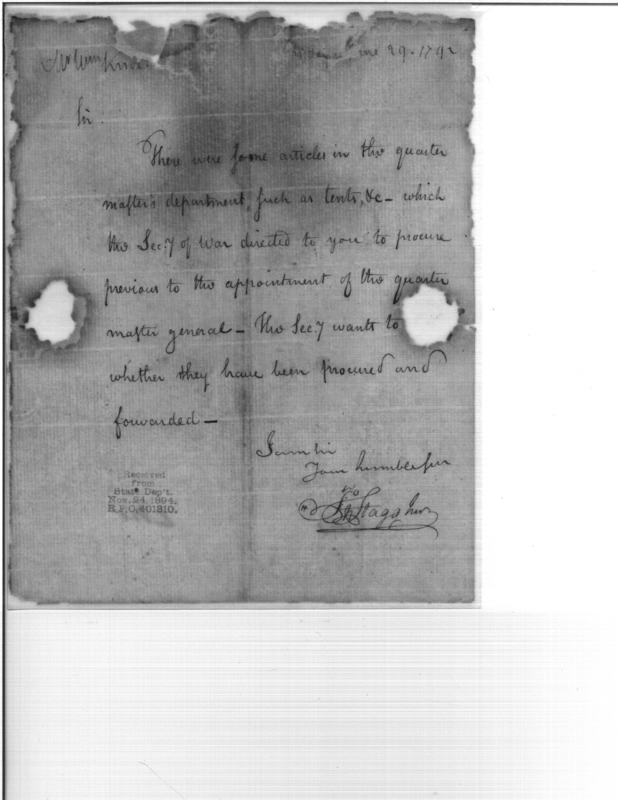 Mr Wm Knox
June 29. 1792
Sir.
There were some articles in the quarter
master's department, such as tents, &c - which
the Sec:y of War directed to you to procure
previous to the appointment of the quarter
master general - The Sec:y wants to
whether they have been procured and
forwarded -
I am Sir
Your humble Ser
Jno Stagg Junr
Received
from
State Dep't.
Nov. 24, 1894.
R.P.O. 401310.